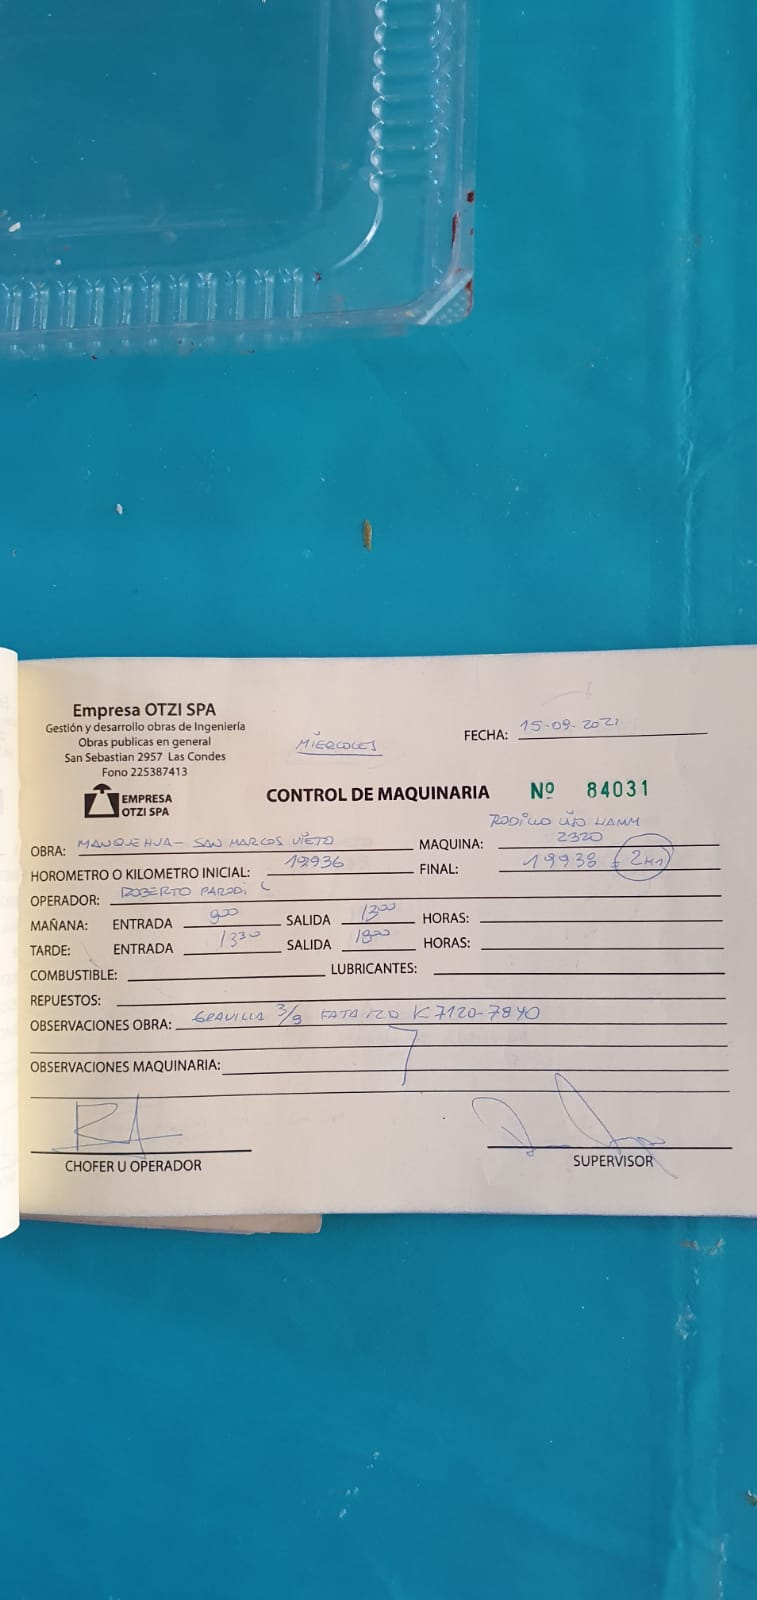 Empresa OTZI SPA
Gestión y desarrollo obras de Ingeniería
Obras publicas en general
San Sebastian 2957 Las Condes
Fono 225387413
EMPRESA
OTZI SPA
MIERCOLES
FECHA: 15-09-2021
CONTROL DE MAQUINARIA Nº 84031
OBRA: MANQUEHUA - SAN MARCOS VIEJO
MAQUINA: RODILLO LISO HAMM
2320
HOROMETRO O KILOMETRO INICIAL: 19936 FINAL: 19938 = 2H1
OPERADOR: ROBERTO PARODI C
MAÑANA: ENTRADA 900 SALIDA 1300 HORAS:
TARDE: ENTRADA 1330 SALIDA 1800 HORAS:
COMBUSTIBLE: LUBRICANTES:
REPUESTOS:
OBSERVACIONES OBRA: GRAVILLA 3/8 IZD K7120-7840
OBSERVACIONES MAQUINARIA:
CHOFER U OPERADOR SUPERVISOR